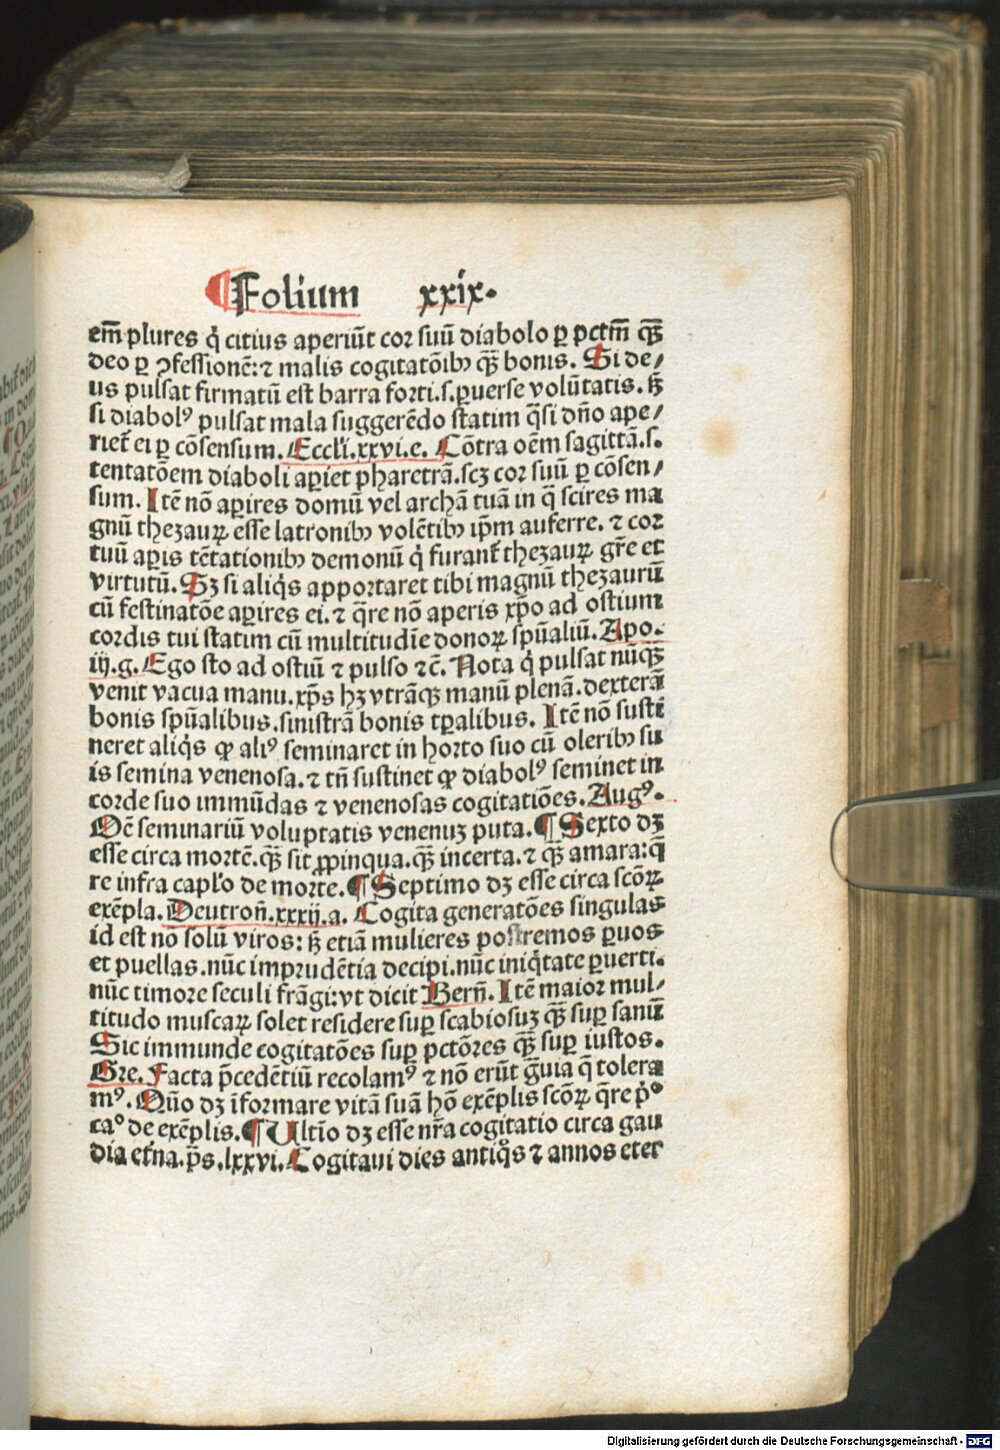 ¶Folium xxix.
em̄ plures q̇ citius aperiūt cor suū diabolo ꝑ pctm̄ qȝ̄
deo ꝑ ꝯfessionē: ⁊ malis cogitatōibꝰ qȝ̄ bonis. Si de/
us pulsat firmatū est barra forti.s.ꝑuerse volūtatis. sȝ
si diabolꝰ pulsat mala suggerēdo statim q̄si dn̄o ape/
riet̄ ei ꝑ cōsensum. Eccli.xxvi.e. Cōtra oēm sagittā.s.
tentatōem diaboli aꝑiet pharetrā.scȝ cor suū ꝑ cōsen/
sum. Itē nō aꝑires domū vel archā tuā in q̄ scires ma
gnū thezauꝝ esse latronibꝰ volētibꝰ ip̄m auferre. ⁊ cor
tuū aꝑis tētationibꝰ demonū q̇ furant̄ thezauꝝ gr̄e et
virtutū. Sȝ si aliq̇s apportaret tibi magnū thezaurū
cū festinatōe aꝑires ei. ⁊ q̄re nō aperis xp̄o ad ostium
cordis tui statim cū multitudīe donoꝝ spūaliū. Apo.
iij.g. Ego sto ad ostiū ⁊ pulso ⁊c̄. Nota q̇ pulsat nūqȝ̄
venit vacua manu.xp̄s hȝ vtrāqȝ manū plenā.dexterā
bonis spūalibus.sinistrā bonis tꝑalibus. Itē nō susti
neret aliq̇s ꝙ aliꝰ seminaret in horto suo cū oleribꝰ su
is semina venenosa. ⁊ tn̄ sustinet ꝙ diabolꝰ seminet in
corde suo immūdas ⁊ venenosas cogitatiōes. Augꝰ.
Oē seminariū voluptatis venenuȝ puta. ¶ Sexto dȝ
esse circa mortē.qȝ̄ sit ꝓpinqua.qȝ̄ incerta. ⁊ qȝ̄ amara: q̄
re infra caplo de morte. ¶ Septimo dȝ esse circa scōꝝ
exēpla. Deutron̄.xxxij.a. Cogita generatōes singulas
id est nō solū viros: sȝ etiā mulieres postremos ꝑuos
et puellas.nūc imprudētia decipi.nūc iniq̇tate ꝑuerti.
nūc timore seculi frāgi: vt dicit Bern̄. Itē maior mul/
titudo muscaꝝ solet residere suꝑ scabiosuȝ qȝ̄ suꝑ sanū
Sic immunde cogitatōes suꝑ pctōres qȝ̄ suꝑ iustos.
Gre. Facta p̄cedētiū recolamꝰ ⁊ nō erūt ḡuia q̄ tolera
mꝰ. Quō dȝ īformare vitā suā hō exēplis scōꝝ q̄re pᵒ
caᵒ de exēplis. ¶ Ultīo dȝ esse nr̄a cogitatio circa gau
dia et̄na.p̄s.lxxvi. Cogitaui dies antiq̊s ⁊ annos eter
Digitalisierung gefördert durch die Deutsche Forschungsgemeinschaft - DFG